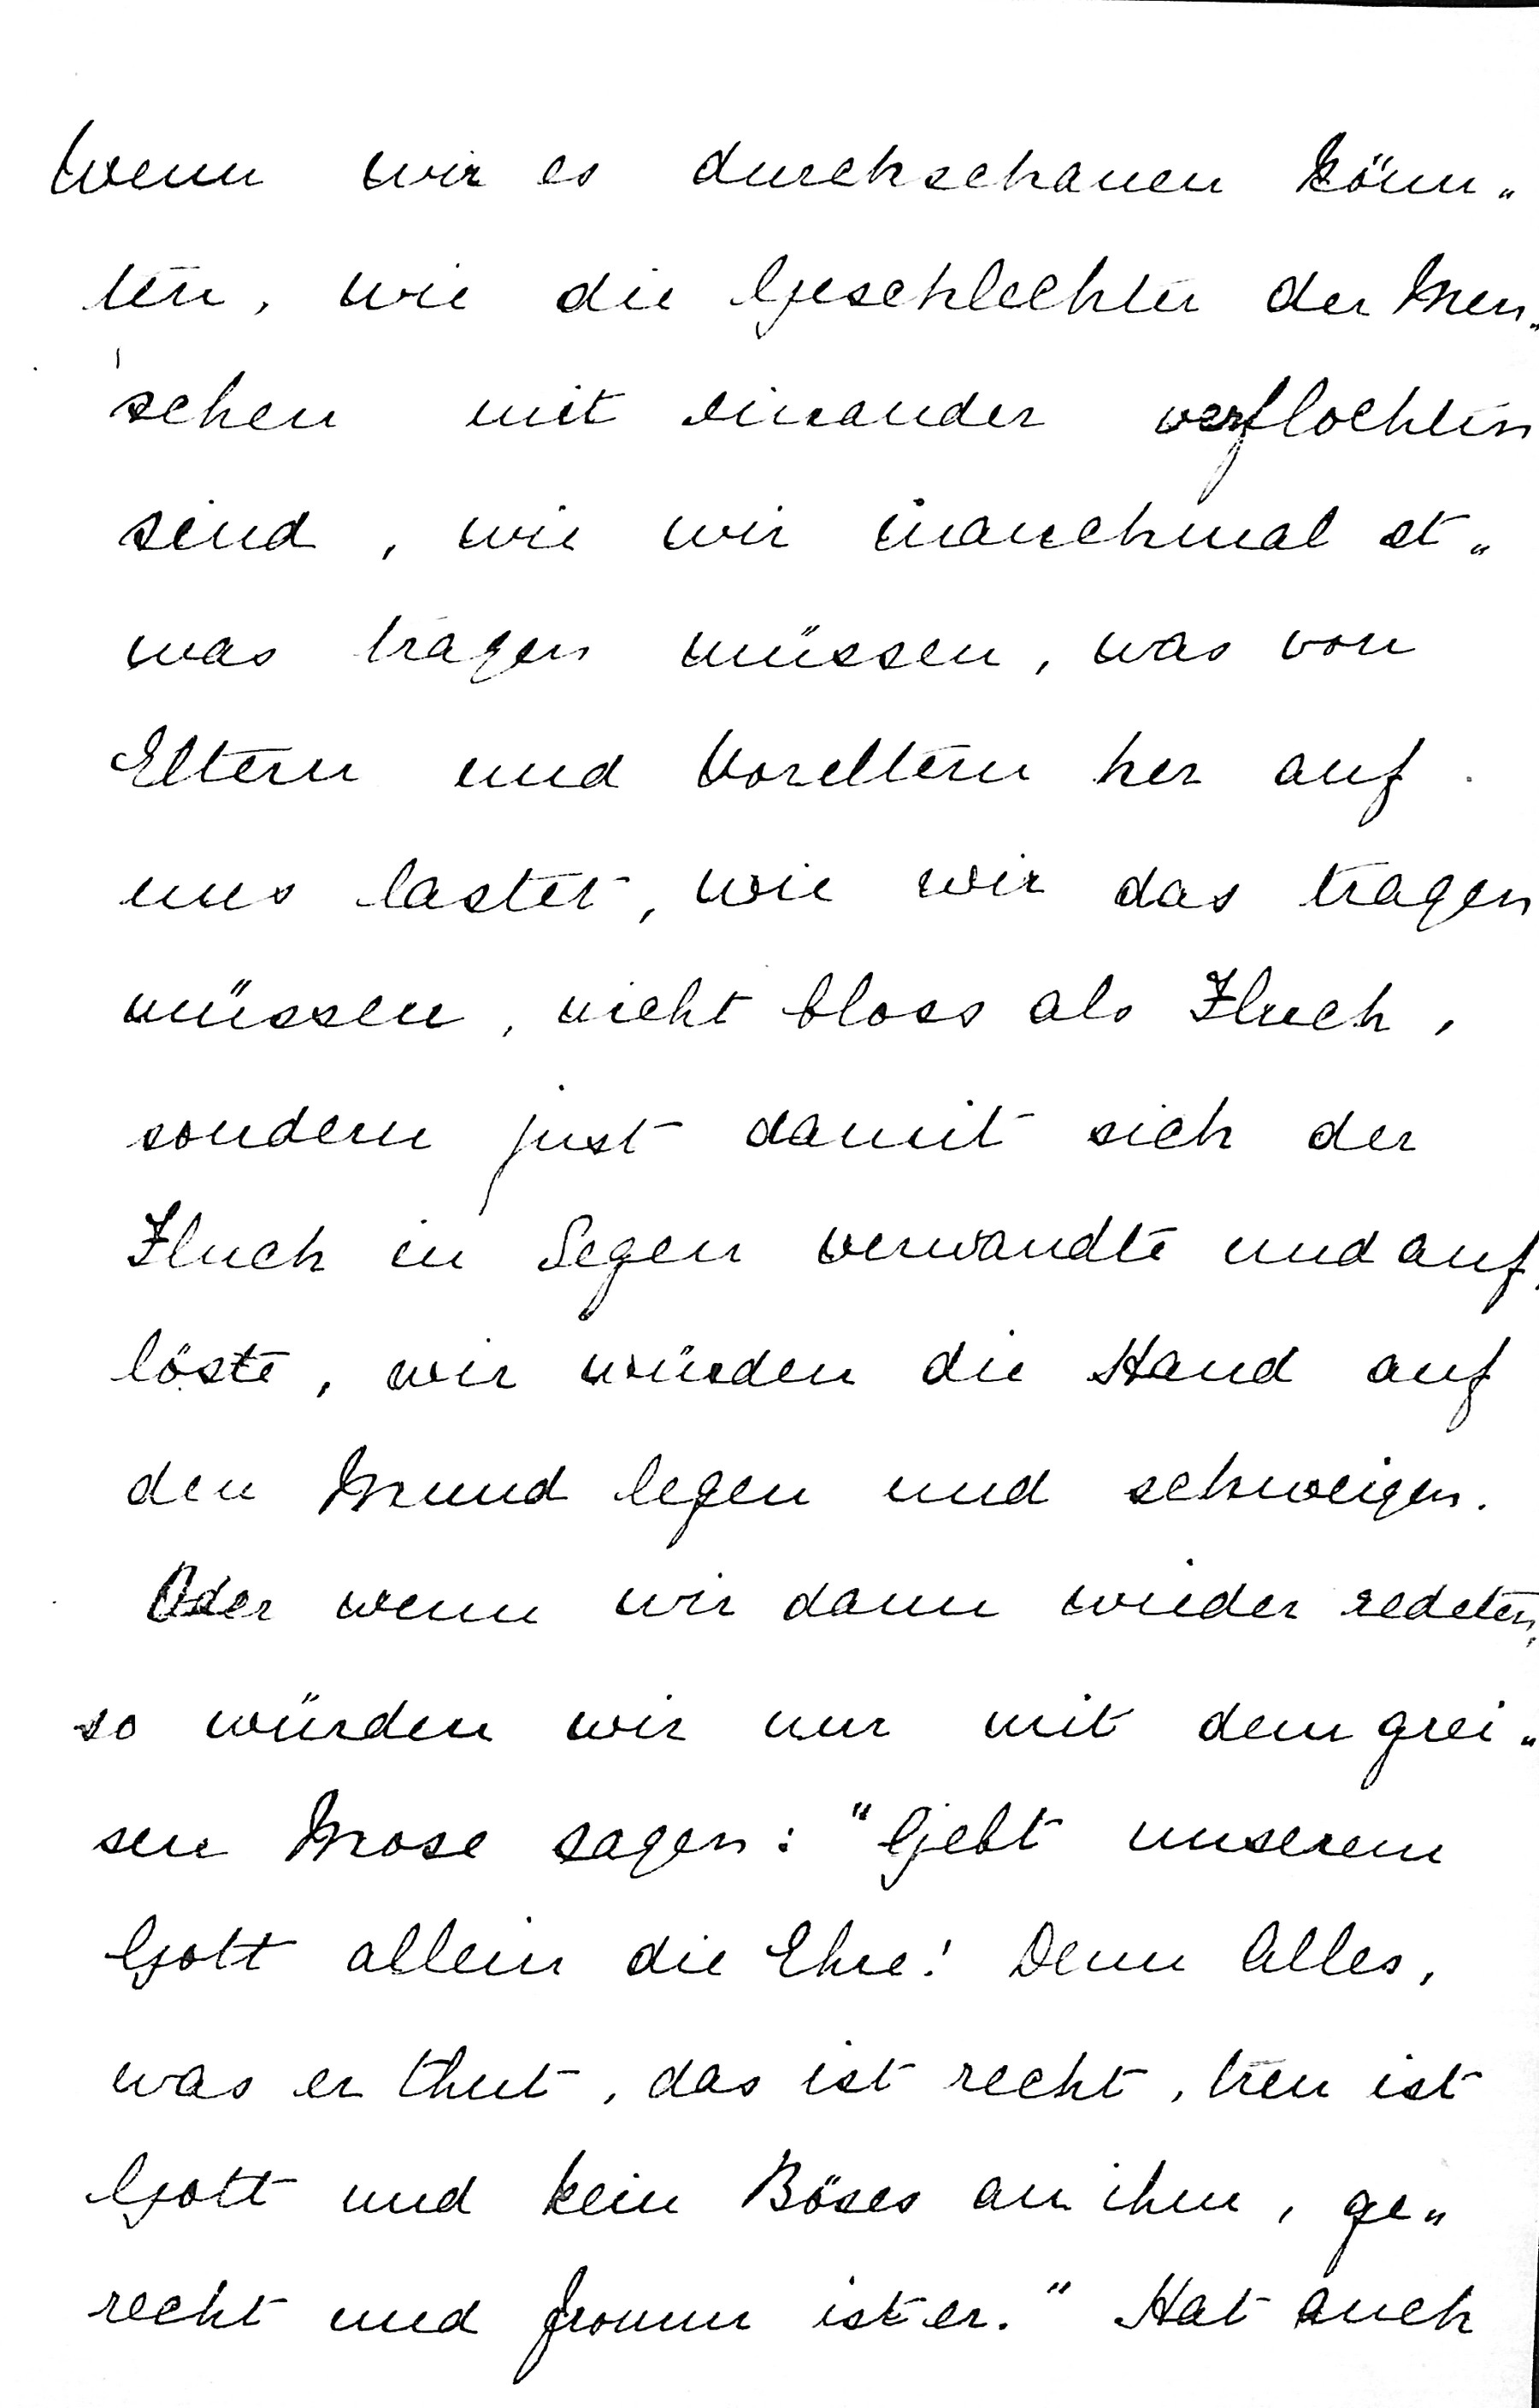 Wenn wir es durchschauen könn„
ten, wie die Geschlechter der Men„
schen mit einander verflochten
sind, wie wir manchmal et„
was tragen müssen, was von
Eltern und Voreltern her auf
uns lastet, wie wir das tragen
müssen, nicht bloss als Fluch,
sondern just damit sich der
Fluch in Segen verwandte und auf„
löste, wir würden die Hand auf
den Mund legen und schweigen.
Oder wenn wir dann wieder redeten,
so würden wir nur mit dem grei„
sen Mose sagen: "Gebt unserem
Gott allein die Ehre! Denn Alles,
was er thut, das ist recht, treu ist
Gott und kein Böses an ihm, ge„
recht und fromm ist er." Hat auch